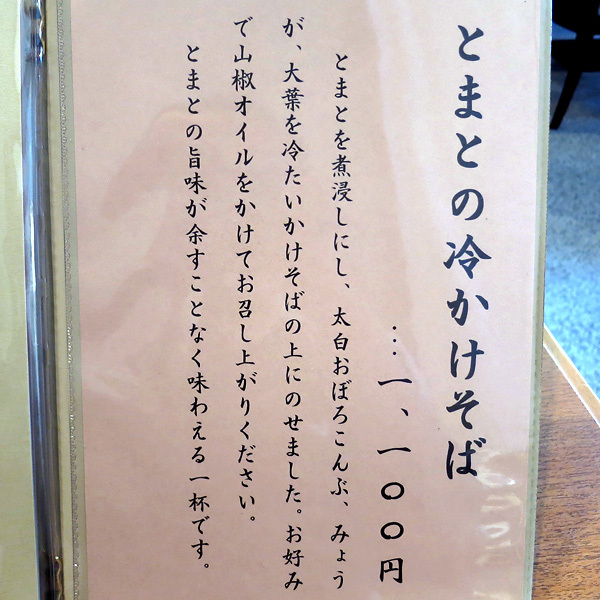 とまとの冷かけそば
…一、一〇〇円
とまとを煮浸しにし、太白おぼろこんぶ、みょう
が、大葉を冷たいかけそばの上にのせました。お好み
で山椒オイルをかけてお召し上がりください。
とまとの旨味が余すことなく味わえる一杯です。